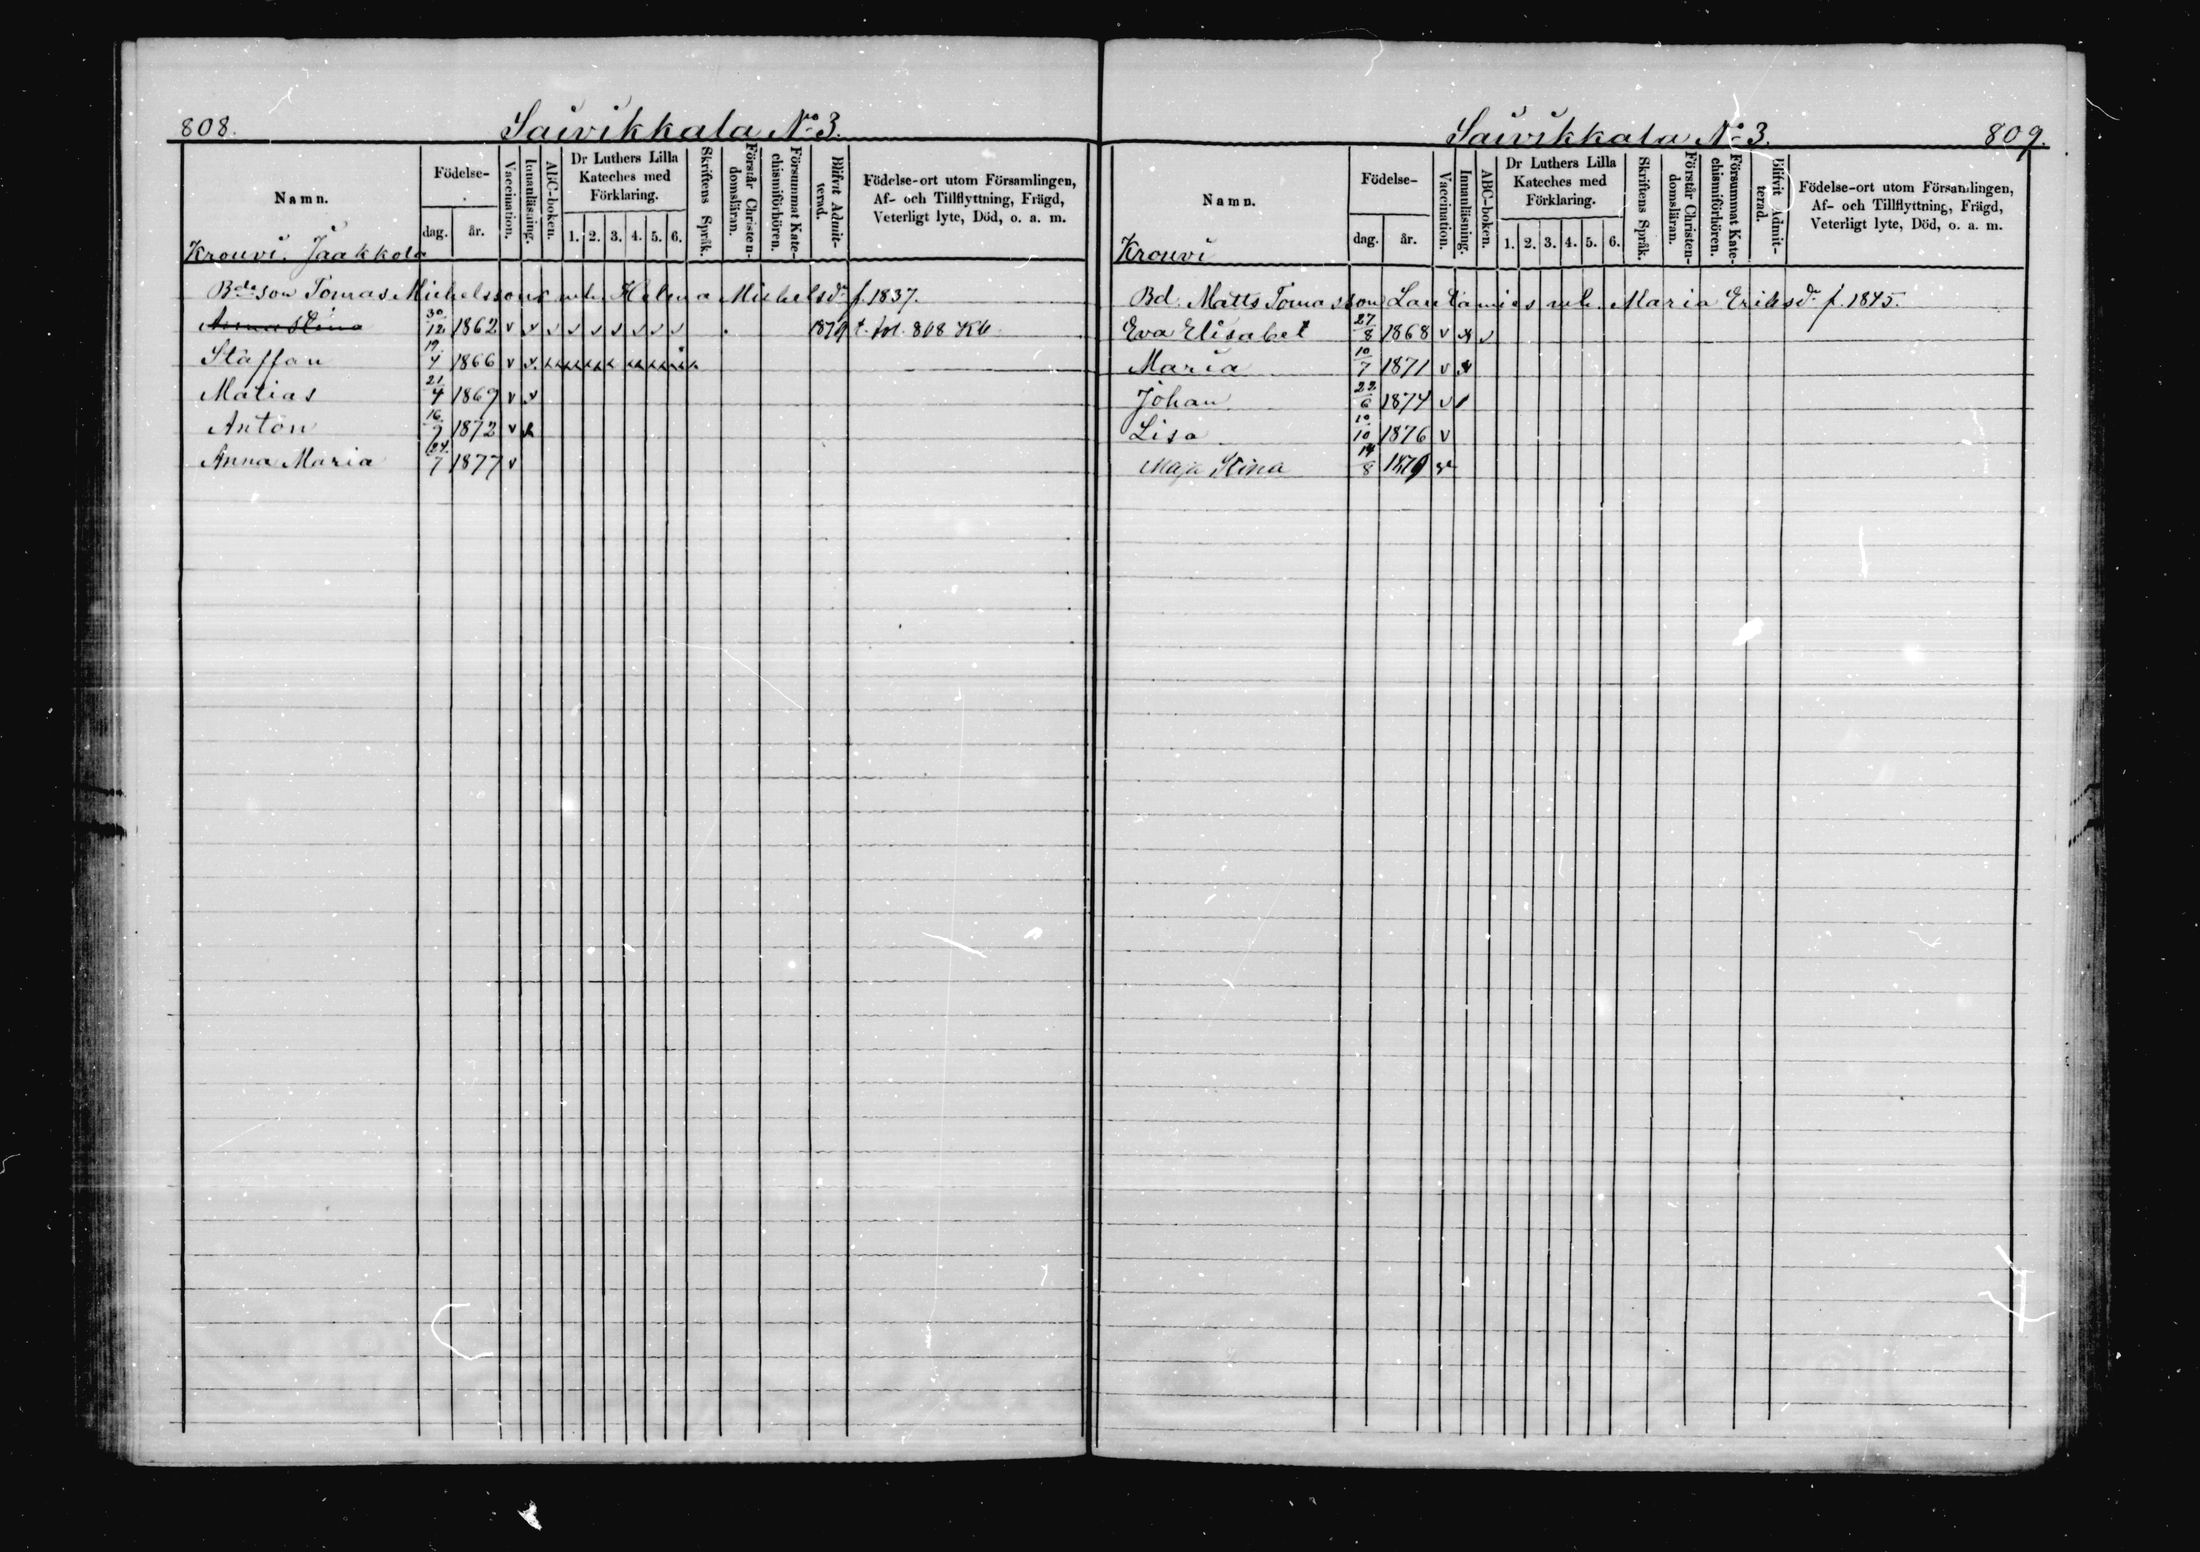 808.
Saivikkala No 3.
Namn.
Födelse-
dag.
år.
Vaccination.
Innanläsning.
ABC-boken.
Dr Luthers Lilla Kateches med Förklaring.
1. 2. 3. 4. 5. 6.
Skriftens Språk.
Förstår Christendomsläran.
Försummat Katechismiförhören.
Blifvit Admitterad.
Födelse-ort utom Församlingen,
Af- och Tillflyttning, Frägd,
Veterligt lyte, Död, o. a. m.
Krouvi. Jaakkola
Bdeson Tomas Michelssons m. h. Helena Michelsdr f. 1837.
Anna Stina 30/12 1862 v v v v v v v v v 1879 t. fol. 868 Kb
Staffan 19/4 1866 v v
Matias 21/4 1869 v v
Anton 16/7 1872 v
Anna Maria 24/7 1877 v
Saivikkala No 3.
809.
Namn.
Födelse-
dag.
år.
Vaccination.
Innanläsning.
ABC-boken.
Dr Luthers Lilla Kateches med Förklaring.
1. 2. 3. 4. 5. 6.
Skriftens Språk.
Förstår Christendomsläran.
Försummat Katechismiförhören.
Blifvit Admitterad.
Födelse-ort utom Församlingen,
Af- och Tillflyttning, Frägd,
Veterligt lyte, Död, o. a. m.
Krouvi
Bd. Matts Tomasson Lautamies m. h. Maria Eriksdr f. 1845.
Eva Elisabet 27/8 1868 v v v
Maria 10/7 1871 v v
Johan 22/6 1874 v
Lisa 10/10 1876 v
Maja Stina 14/8 1879 v